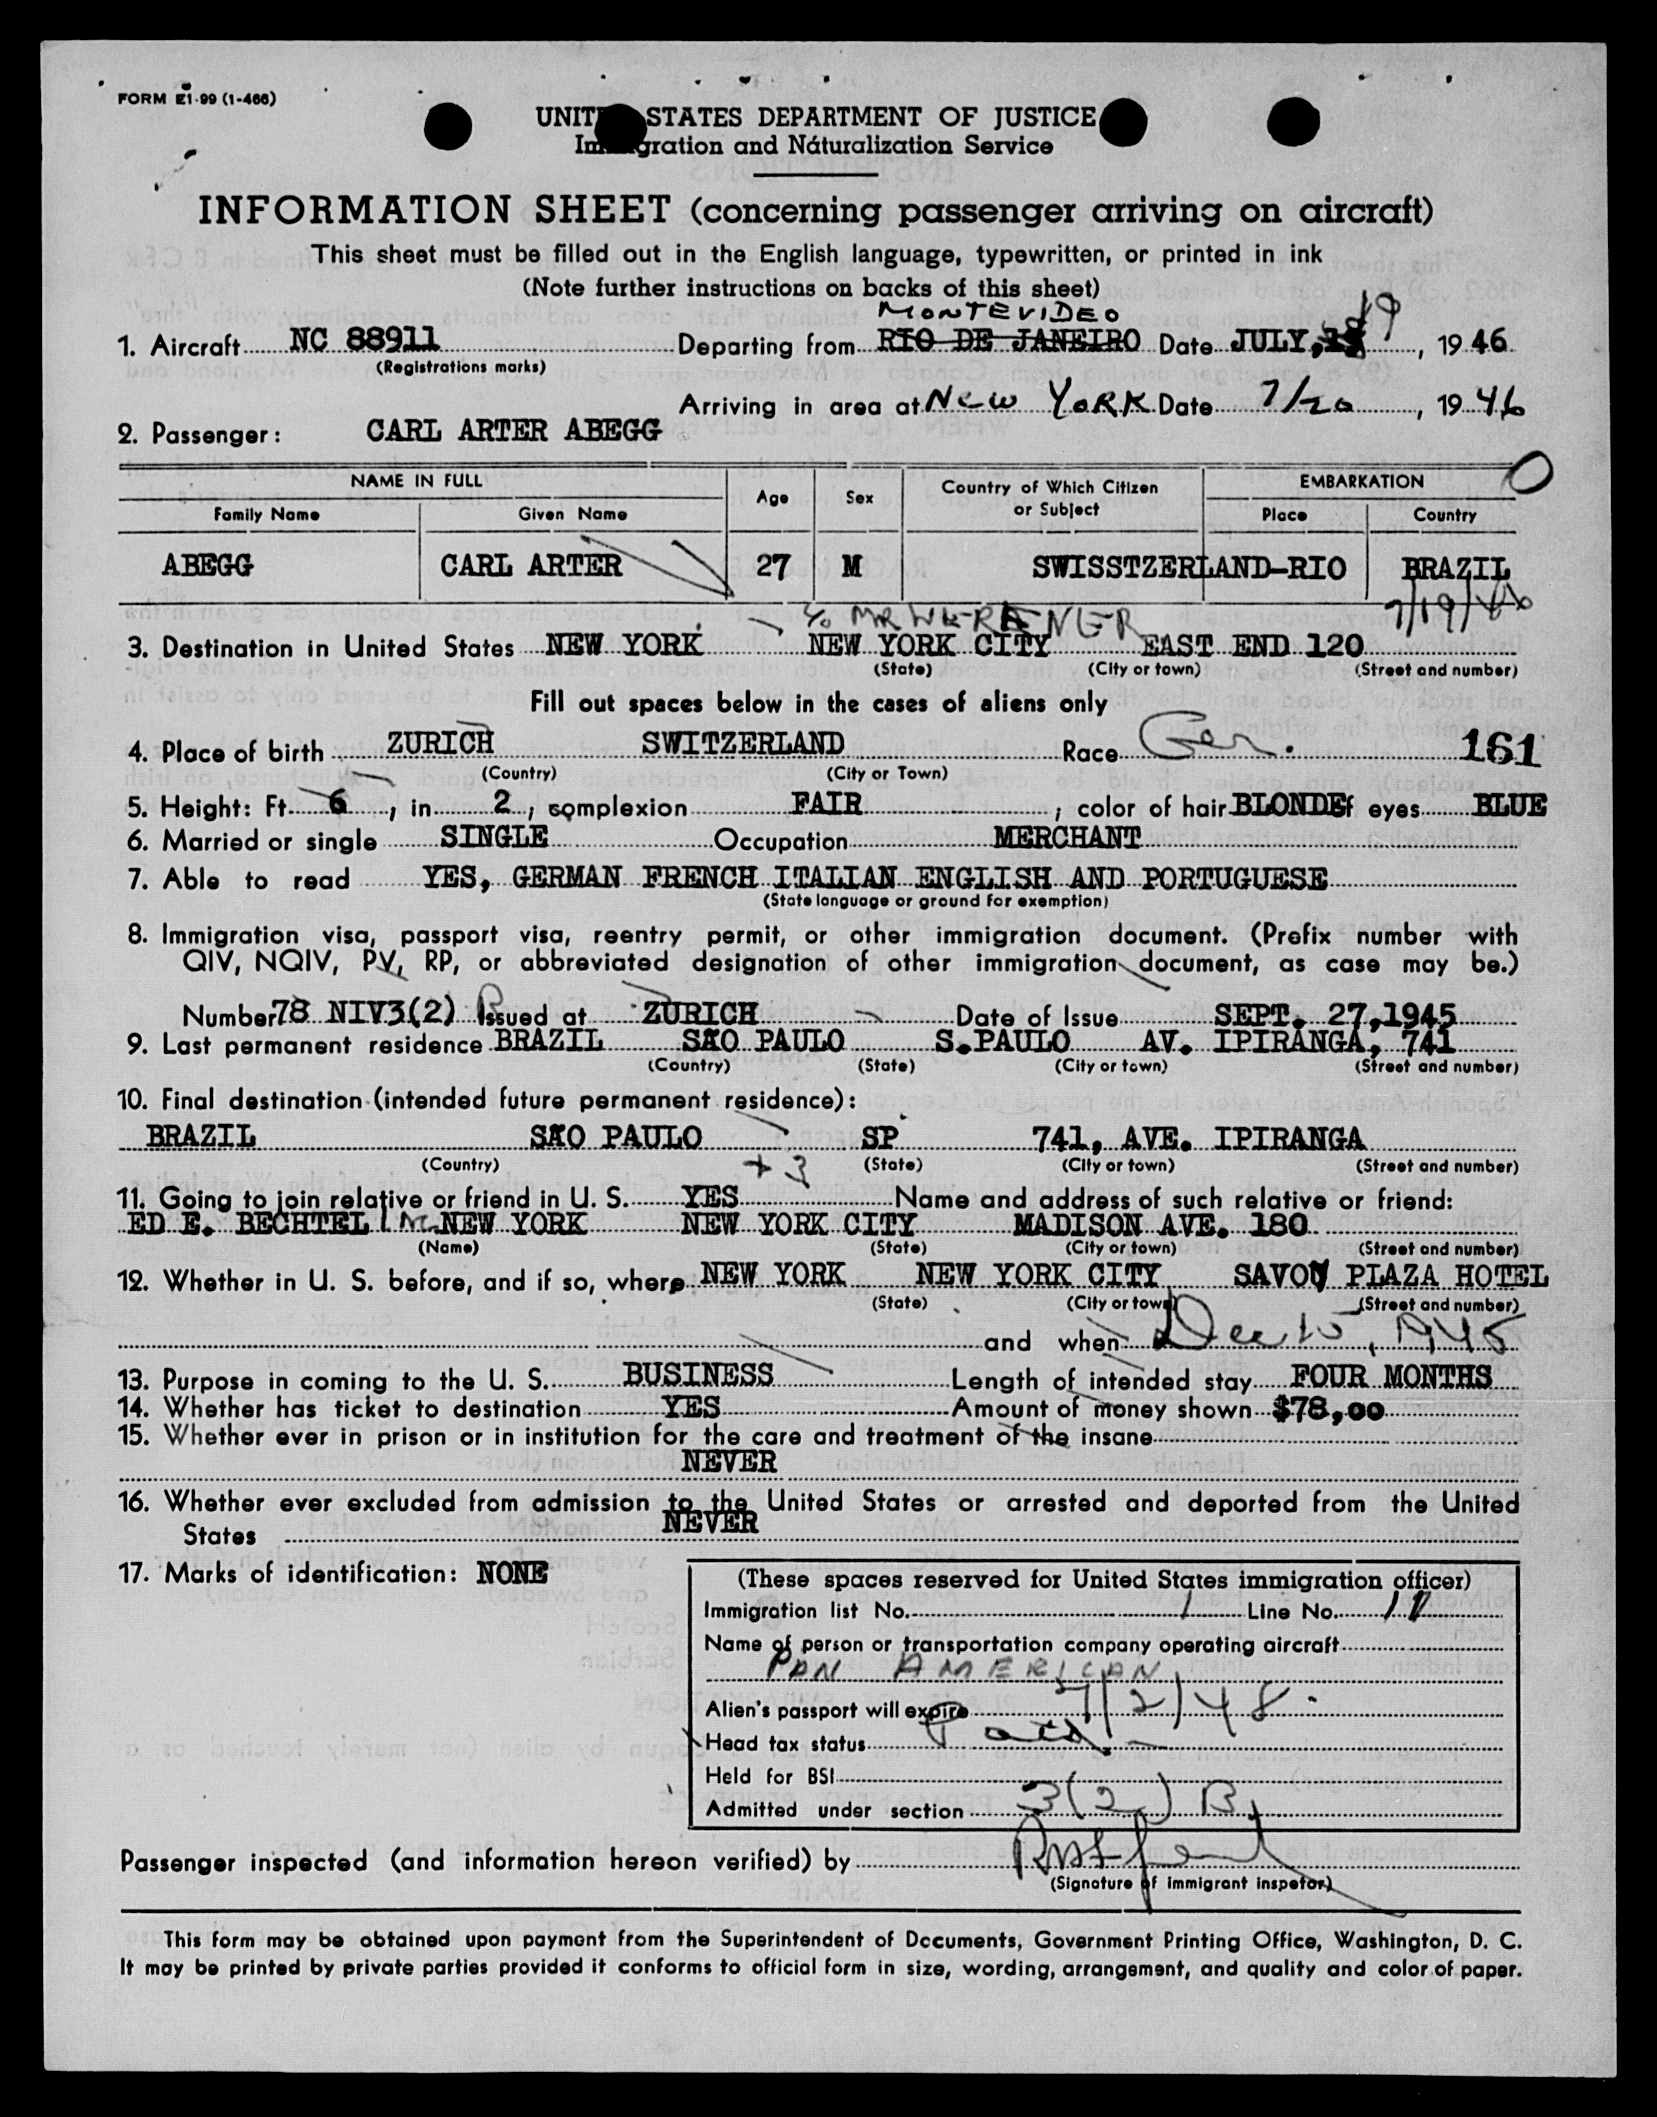 FORM EI-99 (1-466)
UNITED STATES DEPARTMENT OF JUSTICE
Immigration and Naturalization Service
INFORMATION SHEET (concerning passenger arriving on aircraft)
This sheet must be filled out in the English language, typewritten, or printed in ink
(Note further instructions on backs of this sheet)
MONTEVIDEO 19
1. Aircraft NC 88911 Departing from RIO DE JANEIRO Date JULY, 18, 1946
(Registrations marks)
Arriving in area at New YORK Date 7/20, 1946
2. Passenger: CARL ARTER ABEGG
NAME IN FULL Age Sex Country of Which Citizen or Subject EMBARKATION
Family Name Given Name Place Country
ABEGG CARL ARTER 27 M SWISSTZERLAND-RIO BRAZIL
7/19/46
c/o MR
3. Destination in United States NEW YORK NEW YORK CITY EAST END 120
(State) (City or town) (Street and number)
Fill out spaces below in the cases of aliens only
4. Place of birth ZURICH SWITZERLAND Race Ger. 161
(Country) (City or Town)
5. Height: Ft. 6, in. 2; complexion FAIR; color of hair BLONDE of eyes BLUE
6. Married or single SINGLE Occupation MERCHANT
7. Able to read YES, GERMAN FRENCH ITALIAN ENGLISH AND PORTUGUESE
(State language or ground for exemption)
8. Immigration visa, passport visa, reentry permit, or other immigration document. (Prefix number with
QIV, NQIV, PV, RP, or abbreviated designation of other immigration document, as case may be.)
Number 78 NIV3(2) B Issued at ZURICH Date of Issue SEPT. 27,1945
9. Last permanent residence BRAZIL SÃO PAULO S.PAULO AV. IPIRANGA, 741
(Country) (State) (City or town) (Street and number)
10. Final destination (intended future permanent residence):
BRAZIL SÃO PAULO SP 741, AVE. IPIRANGA
(Country) (State) (City or town) (Street and number)
+3
11. Going to join relative or friend in U. S. YES Name and address of such relative or friend:
ED E. BECHTEL NEW YORK NEW YORK CITY MADISON AVE. 180
(Name) (State) (City or town) (Street and number)
12. Whether in U. S. before, and if so, where NEW YORK NEW YORK CITY SAVOY PLAZA HOTEL
(State) (City or town) (Street and number)
and when Dec 15, 1945
13. Purpose in coming to the U. S. BUSINESS Length of intended stay FOUR MONTHS
14. Whether has ticket to destination YES Amount of money shown $78,00
15. Whether ever in prison or in institution for the care and treatment of the insane
NEVER
16. Whether ever excluded from admission to the United States or arrested and deported from the United
States NEVER
17. Marks of identification: NONE
(These spaces reserved for United States immigration officer)
Immigration list No. 1 Line No. 11
Name of person or transportation company operating aircraft
PAN AMERICAN
Alien's passport will expire 7/2/48.
Head tax status Paid
Held for BSI
Admitted under section 3(2) B
Passenger inspected (and information hereon verified) by
(Signature of immigrant inspetor)
This form may be obtained upon payment from the Superintendent of Documents, Government Printing Office, Washington, D. C.
It may be printed by private parties provided it conforms to official form in size, wording, arrangement, and quality and color of paper.